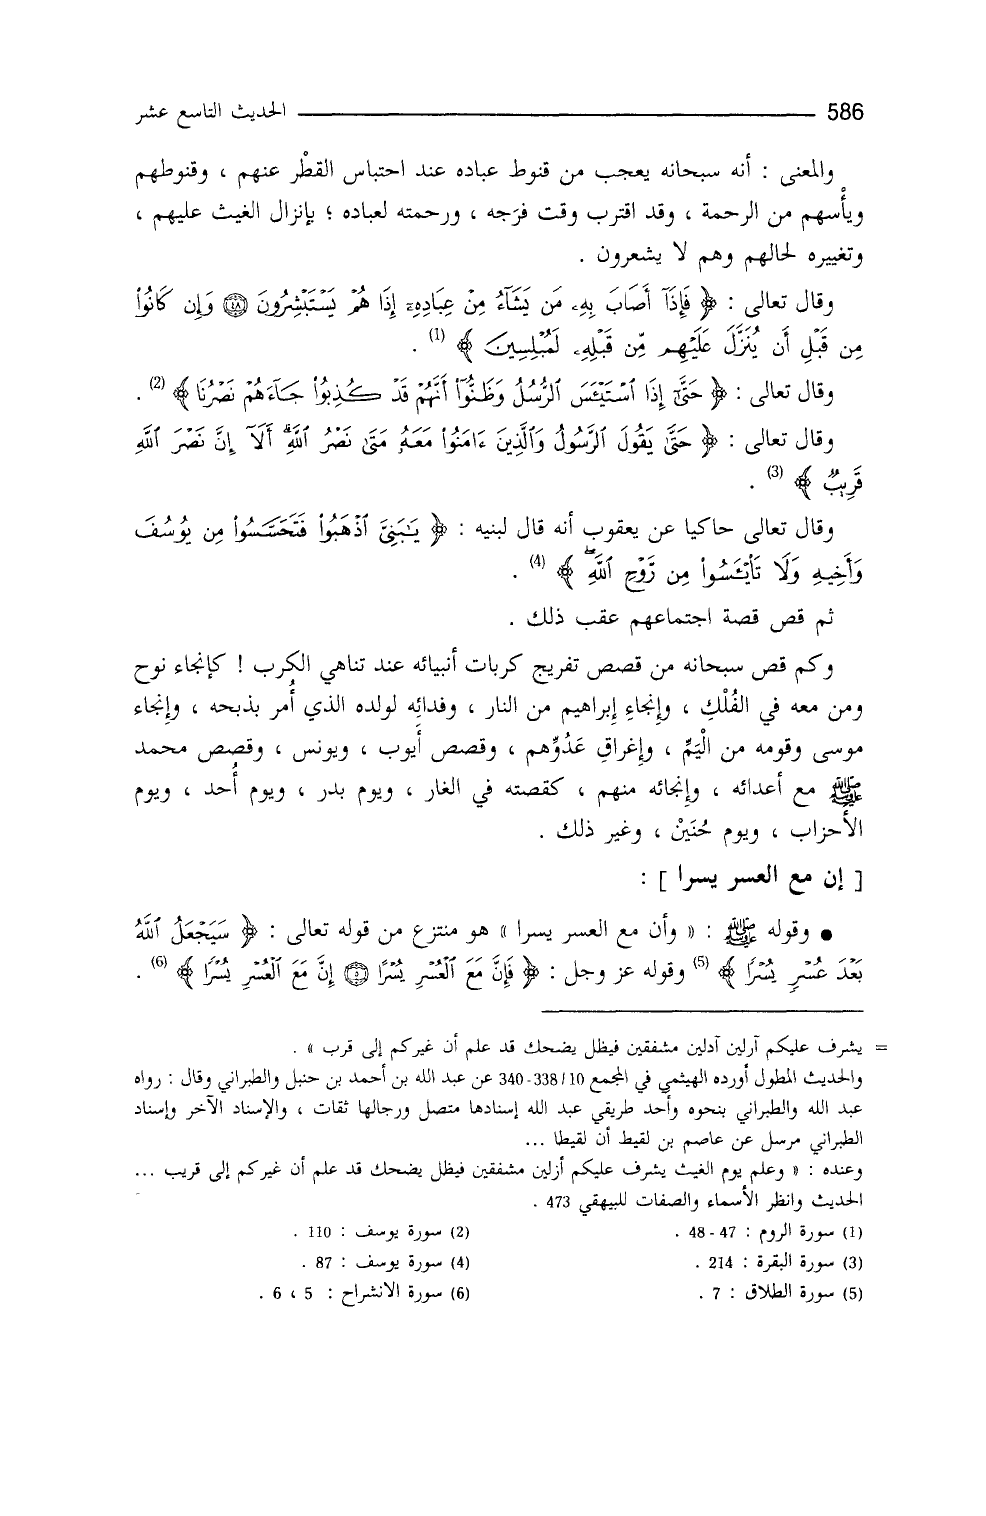 586 الحديث التاسع عشر
والمعنى : أنه سبحانه يعجب من قنوط عباده عند احتباس القطْر عنهم ، وقنوطهم
ويأْسهم من الرحمة ، وقد اقترب وقت فرَجه ، ورحمته لعباده ؛ بإنزال الغيث عليهم ،
وتغييره لحالهم وهم لا يشعرون .
وقال تعالى : ﴿ فَإِذَآ أَصَابَ بِهِۦ مَن يَشَآءُ مِنْ عِبَادِهِۦٓ إِذَا هُمْ يَسْتَبْشِرُونَ ۝٤٨ وَإِن كَانُوا۟
مِن قَبْلِ أَن يُنَزَّلَ عَلَيْهِم مِّن قَبْلِهِۦ لَمُبْلِسِينَ ﴾ (1) .
وقال تعالى : ﴿ حَتَّىٰٓ إِذَا ٱسْتَيْـَٔسَ ٱلرُّسُلُ وَظَنُّوٓا۟ أَنَّهُمْ قَدْ كُذِبُوا۟ جَآءَهُمْ نَصْرُنَا ﴾ (2) .
وقال تعالى : ﴿ حَتَّىٰ يَقُولَ ٱلرَّسُولُ وَٱلَّذِينَ ءَامَنُوا۟ مَعَهُۥ مَتَىٰ نَصْرُ ٱللَّهِ ۗ أَلَآ إِنَّ نَصْرَ ٱللَّهِ
قَرِيبٌ ﴾ (3) .
وقال تعالى حاكيا عن يعقوب أنه قال لبنيه : ﴿ يَـٰبَنِىَّ ٱذْهَبُوا۟ فَتَحَسَّسُوا۟ مِن يُوسُفَ
وَأَخِيهِ وَلَا تَا۟يْـَٔسُوا۟ مِن رَّوْحِ ٱللَّهِ ۖ ﴾ (4) .
ثم قص قصة اجتماعهم عقب ذلك .
وكم قص سبحانه من قصص تفريج كربات أنبيائه عند تناهي الكرب ! كإنجاء نوح
ومن معه في الفُلْكِ ، وإنجاءِ إبراهيم من النار ، وفدائِه لولده الذي أُمر بذبحه ، وإنجاء
موسى وقومه من الْيَمِّ ، وإغراقِ عَدُوِّهم ، وقصص أيوب ، ويونس ، وقصص محمد
ﷺ مع أعدائه ، وإنجائه منهم ، كقصته في الغار ، ويوم بدر ، ويوم أُحد ، ويوم
الأحزاب ، ويوم حُنَيْن ، وغير ذلك .
[ إن مع العسر يسرا ] :
● وقوله ﷺ : « وأن مع العسر يسرا » هو منتزع من قوله تعالى : ﴿ سَيَجْعَلُ ٱللَّهُ
بَعْدَ عُسْرٍ يُسْرًا ﴾ (5) وقوله عز وجل : ﴿ فَإِنَّ مَعَ ٱلْعُسْرِ يُسْرًا ۝٥ إِنَّ مَعَ ٱلْعُسْرِ يُسْرًا ﴾ (6) .
= يشرف عليكم آزلين آدلين مشفقين فيظل يضحك قد علم أن غيركم إلى قرب » .
والحديث المطول أورده الهيثمي في المجمع 10/ 338-340 عن عبد الله بن أحمد بن حنبل والطبراني وقال : رواه
عبد الله والطبراني بنحوه وأحد طريقي عبد الله إسنادها متصل ورجالها ثقات ، والإسناد الآخر وإسناد
الطبراني مرسل عن عاصم بن لقيط أن لقيطا ...
وعنده : « وعلم يوم الغيث يشرف عليكم أزلين مشفقين فيظل يضحك قد علم أن غيركم إلى قريب ...
الحديث وانظر الأسماء والصفات للبيهقي 473 .
(1) سورة الروم : 47 - 48 .
(2) سورة يوسف : 110 .
(3) سورة البقرة : 214 .
(4) سورة يوسف : 87 .
(5) سورة الطلاق : 7 .
(6) سورة الانشراح : 5 ، 6 .